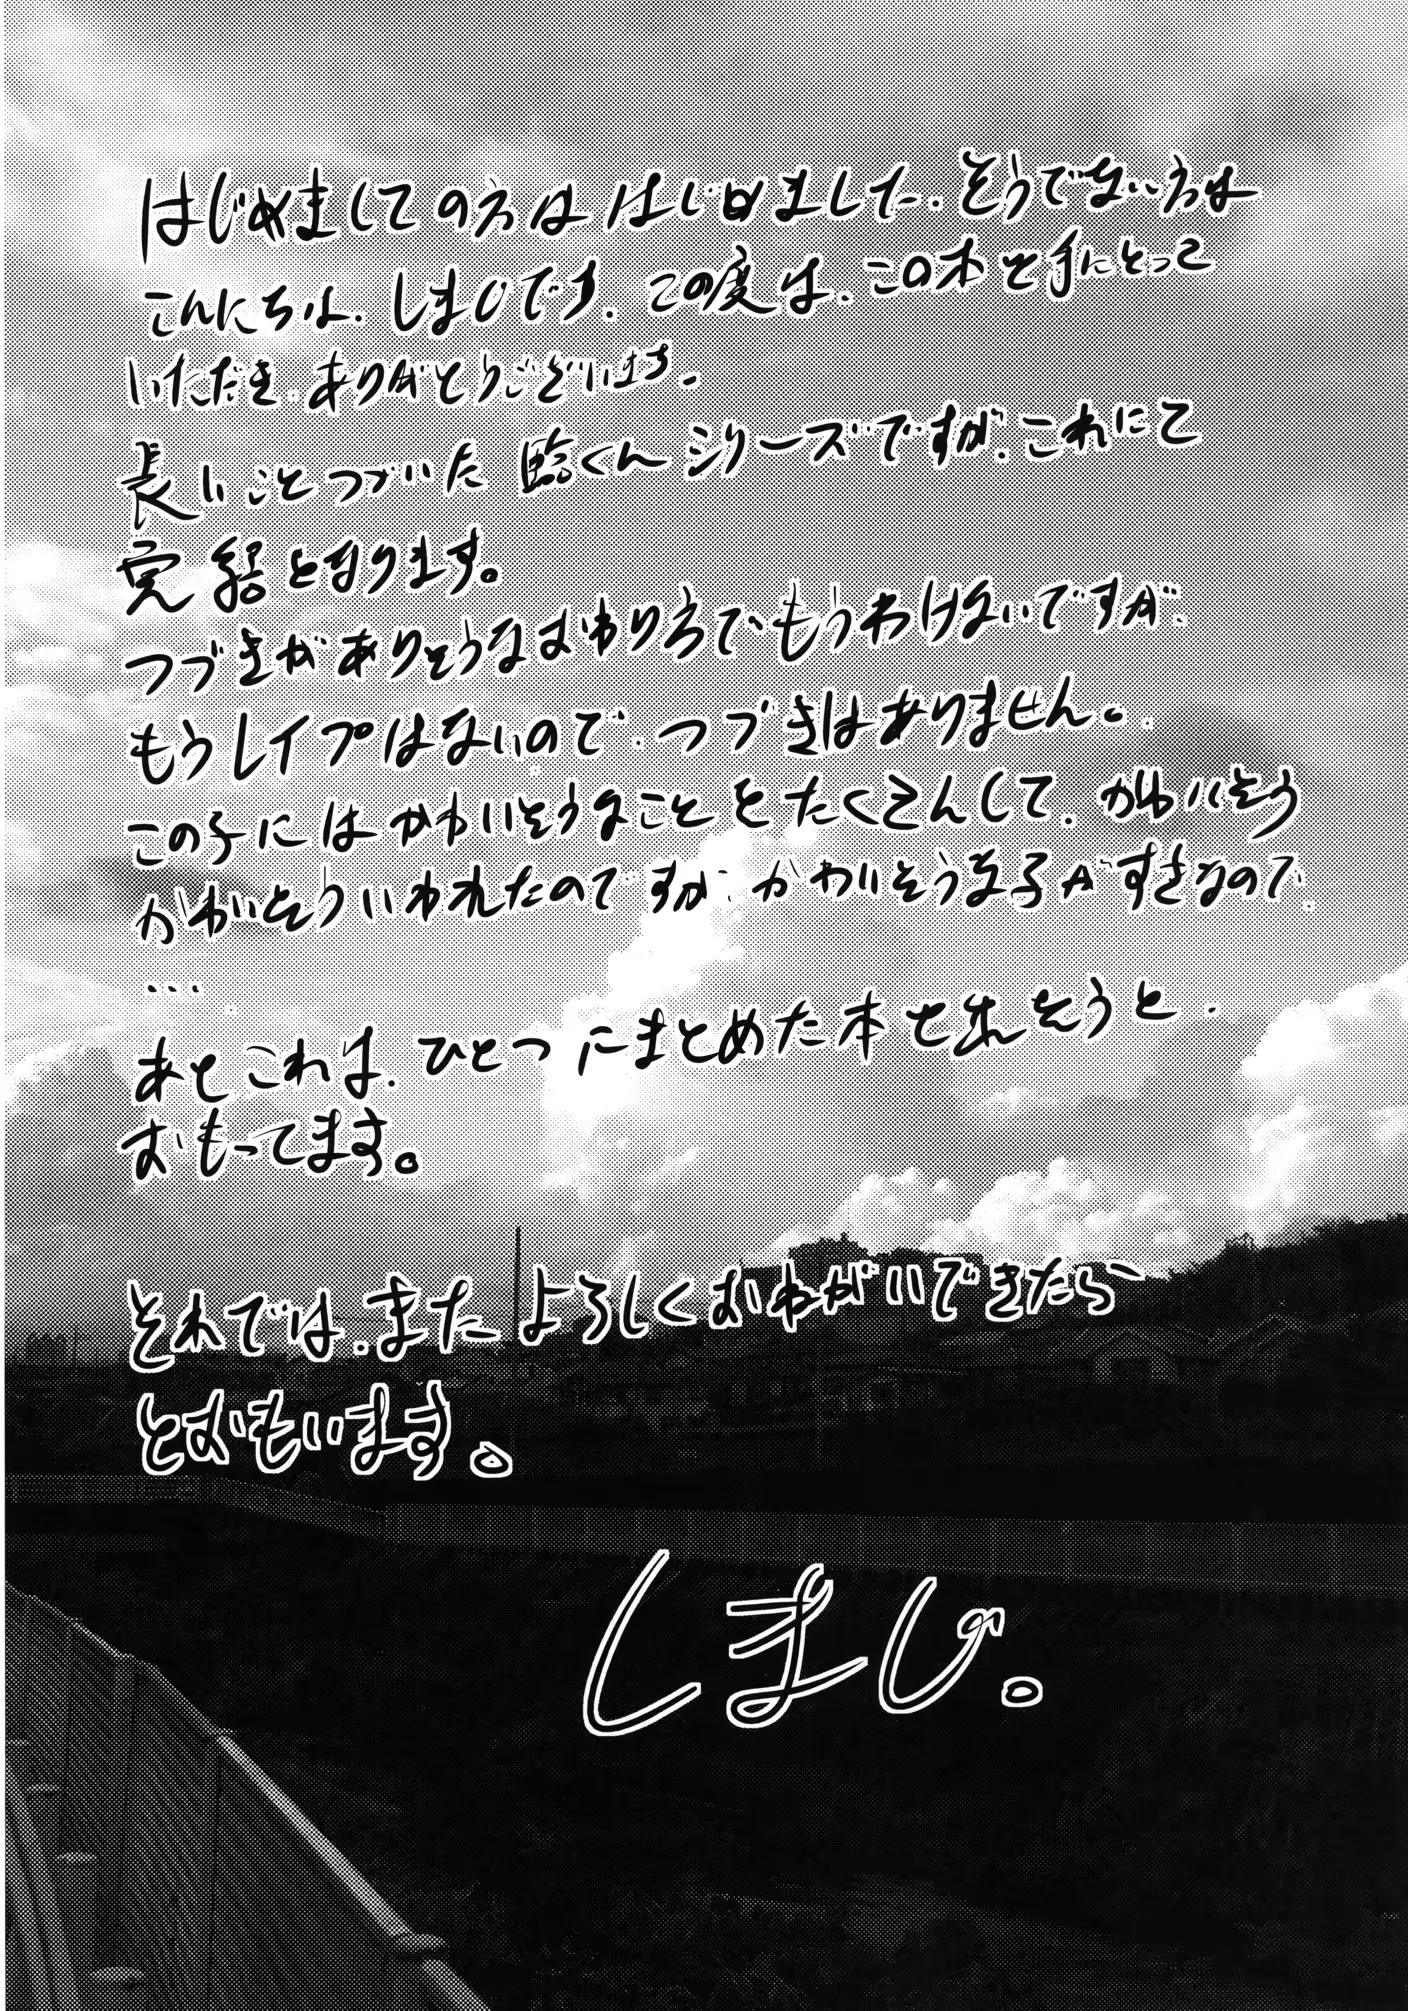 はじめましての方は はじめました. そうでない方は
こんにちは. しまじです. この度は. この本を手にとって
いただき. ありがとうございます.
長いことつづいた くんシリーズですが. これにて
完結となります。
つづきがありそうなおわり方でもうわけないですが.
もうレイプはないので. つづきはありません。
この子にはかわいそうなことをたくさんして. かわいそう
かわいそういわれたのですが. かわいそうな子がすきなので.
...
あとこれは. ひとつにまとめた本を出そうと.
おもってます。
それでは. またよろしくおねがいできたら
とおもいます。
しまじ。